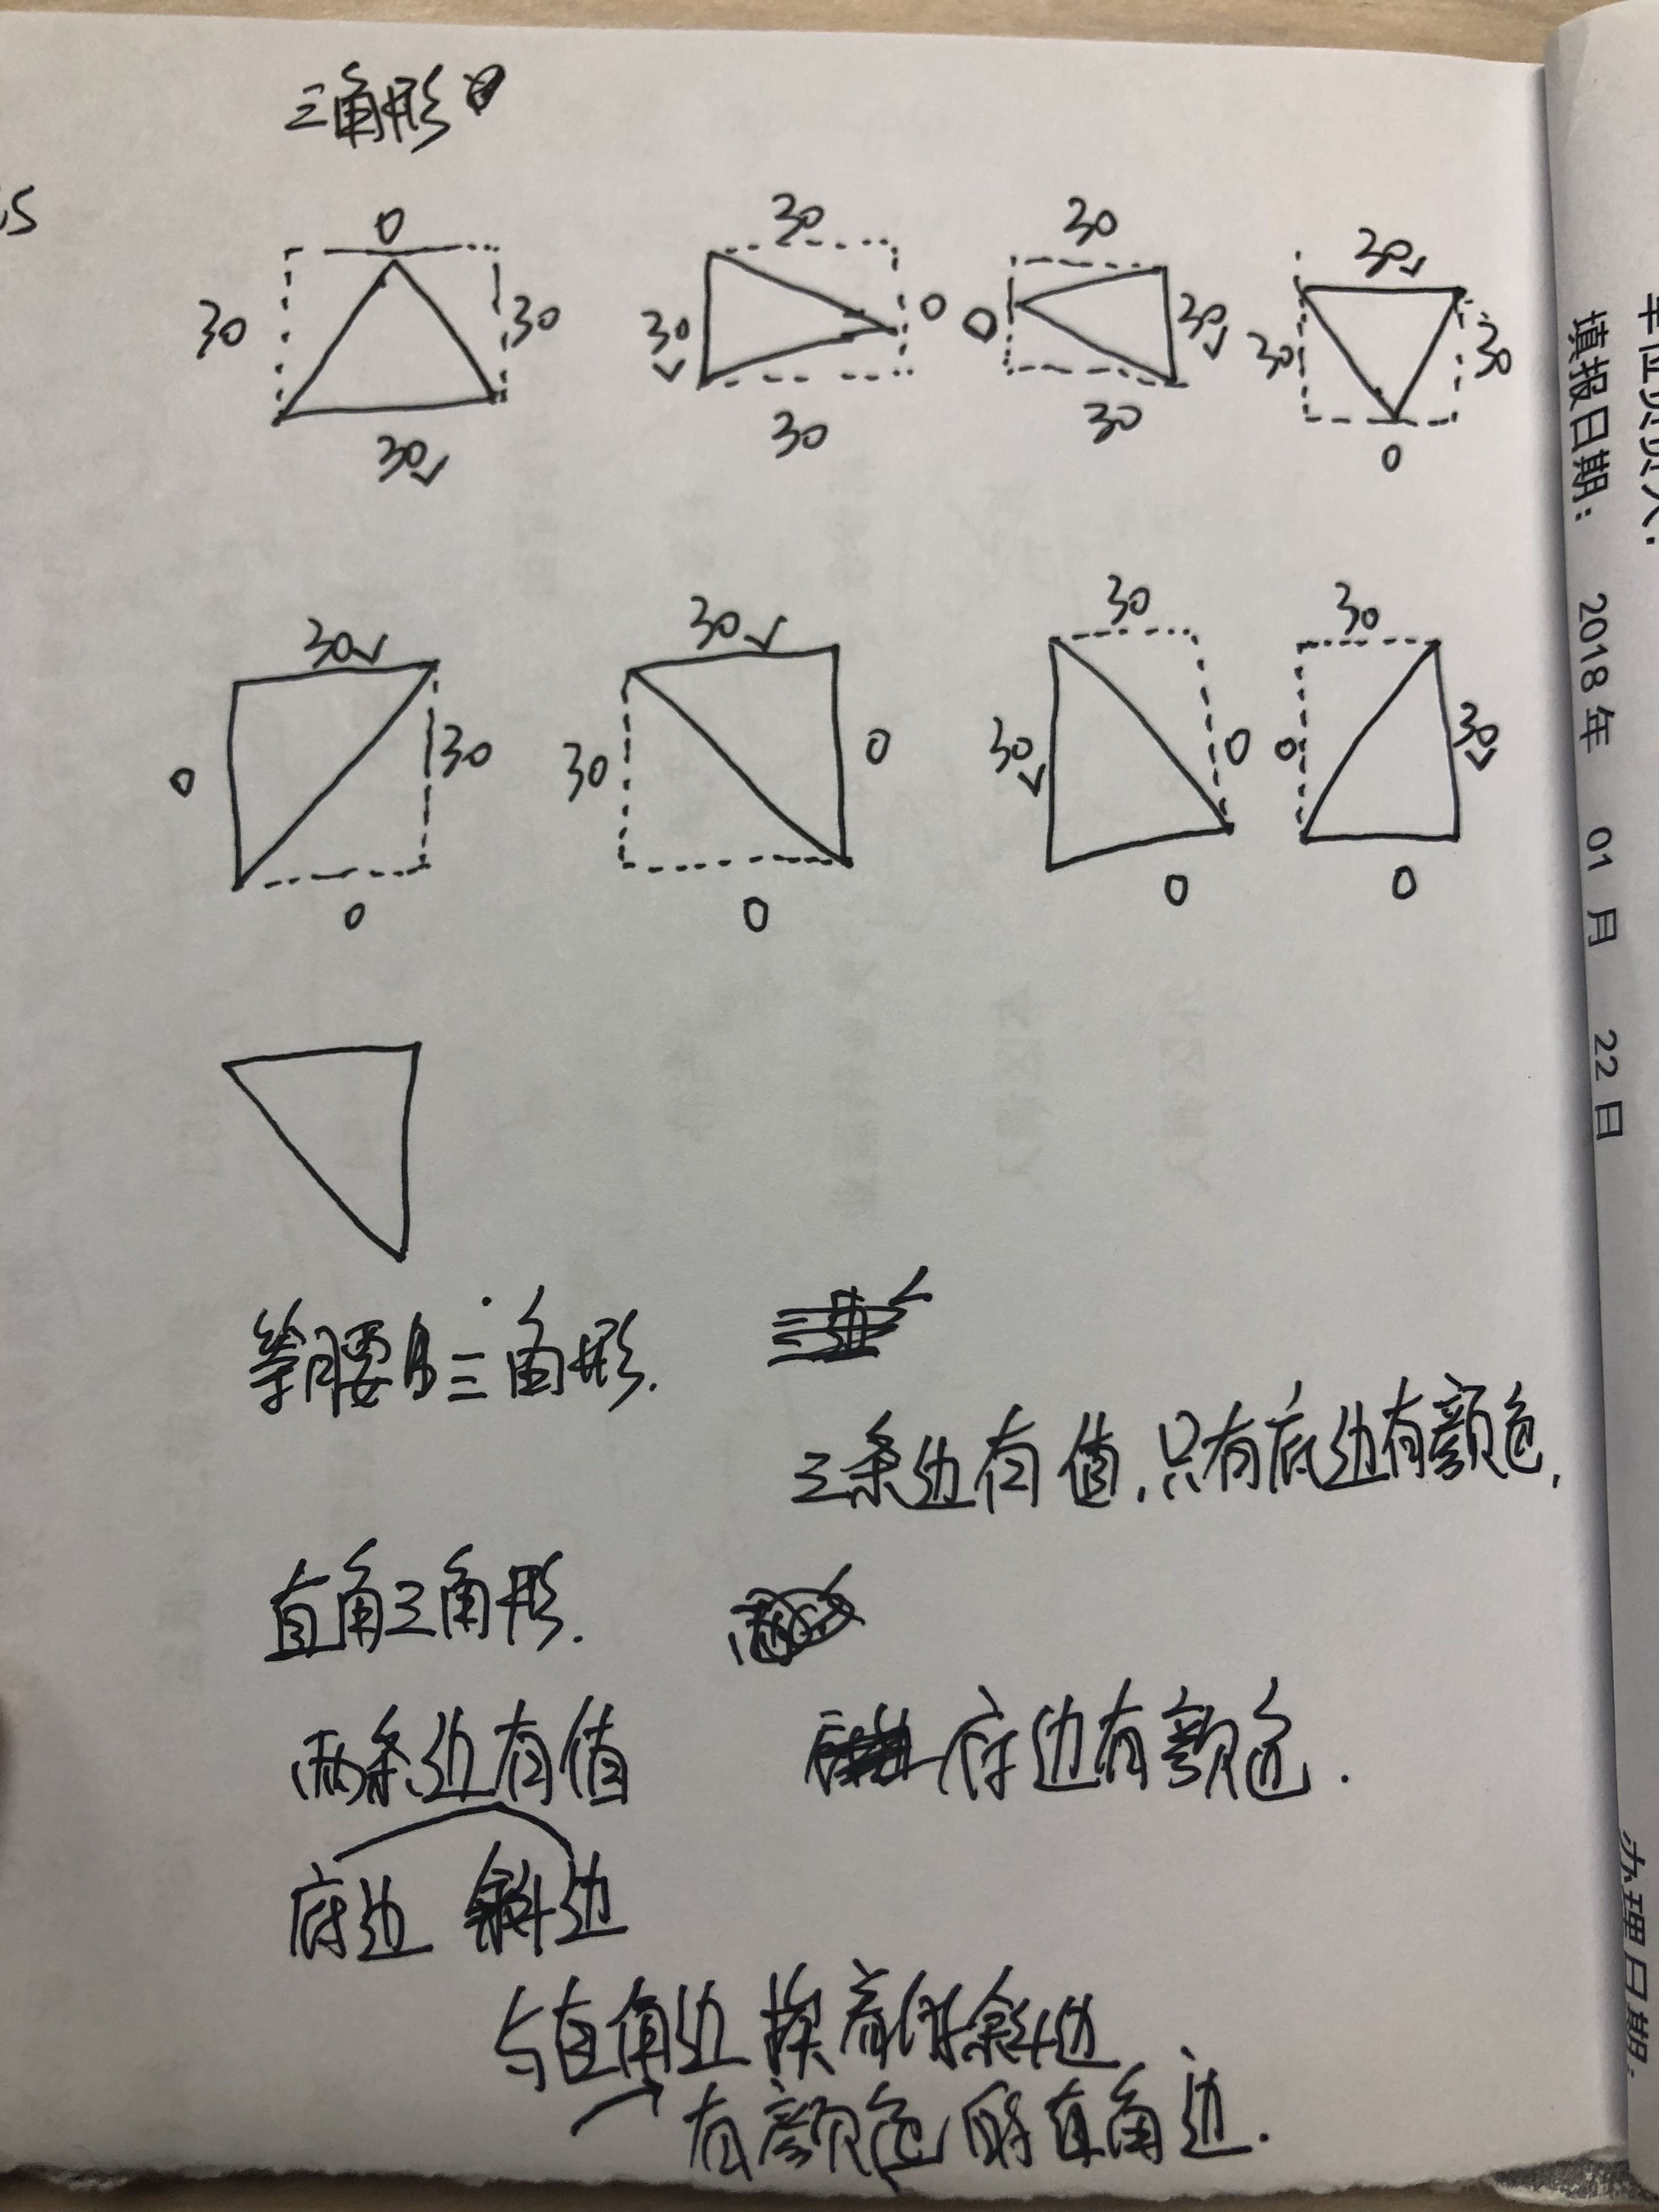 三角形
0
30
30
30✓
30
30✓
0
30
30
0
30✓
30
30✓
30
30
0
30✓
0
30
0
30✓
30
0
0
30
30✓
0
0
30
0
30✓
0
等腰三角形.
三条边有值.只有底边有颜色,
直角三角形.
两条边有值
底边有颜色.
底边 斜边
与直角边挨着的斜边
有颜色的直角边.
填报日期: 2018年 01月 22日
办理日期: